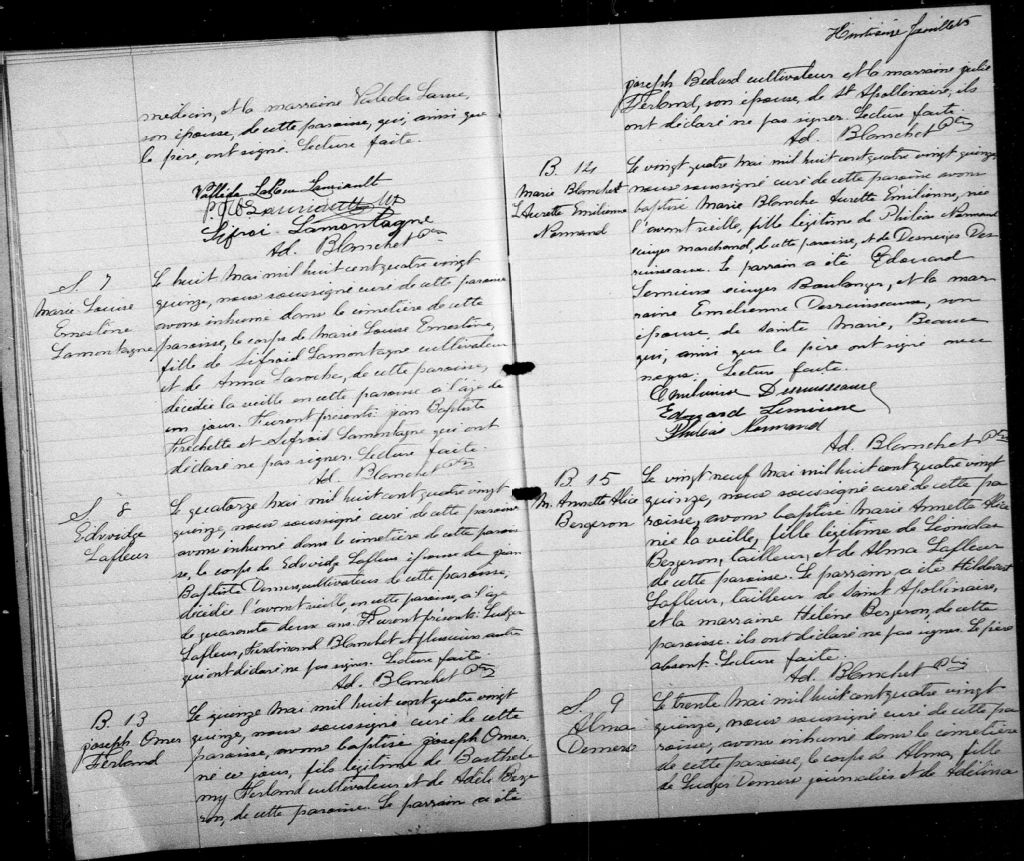 médecin, et la marraine Valleda Larue,
son épouse, de cette paroisse, qui, ainsi que
le père, ont signé. Lecture faite.
Sifroi Lamontagne
Ad. Blanchet Ptre
S. 7
Marie Louise
Ernestine
Lamontagne
Le huit Mai mil huit cent quatre vingt
quinze, nous soussigné curé de cette paroisse
avons inhumé dans le cimetière de cette
paroisse, le corps de Marie Louise Ernestine,
fille de Sifroid Lamontagne cultivateur
et de Anna Laroche, de cette paroisse,
décédée la veille en cette paroisse à l'age de
un jour. Furent présents: Jean Baptiste
Fréchette et Sifroid Lamontagne qui ont
déclaré ne pas signer. Lecture faite.
Ad. Blanchet Ptre
S. 8
Edvidge
Lafleur
Le quatorze Mai mil huit cent quatre vingt
quinze, nous soussigné curé de cette paroisse
avons inhumé dans le cimetière de cette parois-
se, le corps de Edvidge Lafleur épouse de Jean
Baptiste Demers, cultivateur de cette paroisse,
décédée l'avant veille, en cette paroisse, à l'age
de quarante deux ans. Furent présents: Ludger
Lafleur, Ferdinand Blanchet et plusieurs autres
qui ont déclaré ne pas signer. Lecture faite.
Ad. Blanchet Ptre
B. 13
Joseph Omer
Ferland
Le quinze Mai mil huit cent quatre vingt
quinze, nous soussigné curé de cette
paroisse, avons baptisé Joseph Omer
né ce jour, fils légitime de Barthele
my Ferland cultivateur et de Adèle Berge
ron, de cette paroisse. Le parrain a été
Huitième feuillet
Joseph Bedard cultivateur et la marraine Julie
Ferland, son épouse, de St Apollinaire, ils
ont déclaré ne pas signer. Lecture faite.
Ad. Blanchet Ptre
B. 14
Marie Blanche
Aurette Emilienne
Normand
Le vingt quatre Mai mil huit cent quatre vingt quinze,
nous soussigné curé de cette paroisse avons
baptisé Marie Blanche Aurette Emilienne, née
l'avant veille, fille légitime de Philéas Normand
marchand, de cette paroisse, et de Desneiges Des
ruisseaux. Le parrain a été Edouard
Lemieux Boulanger, et la mar
raine Emelienne Desruisseaux, son
épouse, de Sainte Marie, Beauce
qui, ainsi que le père ont signé avec
nous. Lecture faite.
Emilienne Desruisseaux
Edouard Lemieux
Philéas Normand
Ad. Blanchet Ptre
B. 15
M. Annette Alice
Bergeron
Le vingt neuf Mai mil huit cent quatre vingt
quinze, nous soussigné curé de cette pa
roisse, avons baptisé Marie Annette Alice
née la veille, fille légitime de Léonidas
Bergeron, tailleur, et de Alma Lafleur
de cette paroisse. Le parrain a été
Lafleur, tailleur de Saint Apollinaire,
et la marraine Hélène Bergeron, de cette
paroisse. ils ont déclaré ne pas signer. Le père
absent. Lecture faite.
Ad. Blanchet Ptre
S. 9
Alma
Demers
Le trente Mai mil huit cent quatre vingt
quinze, nous soussigné curé de cette pa
roisse, avons inhumé dans le cimetière
de cette paroisse, le corps de Alma, fille
de Ludger Demers journalier et de Adélina